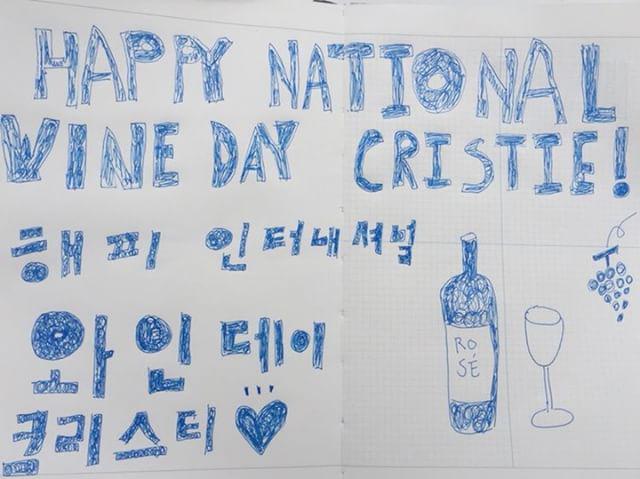 HAPPY NATIONAL
WINE DAY CRISTIE!
해피 인터내셔널
와인데이
크리스티
RO
SÉ